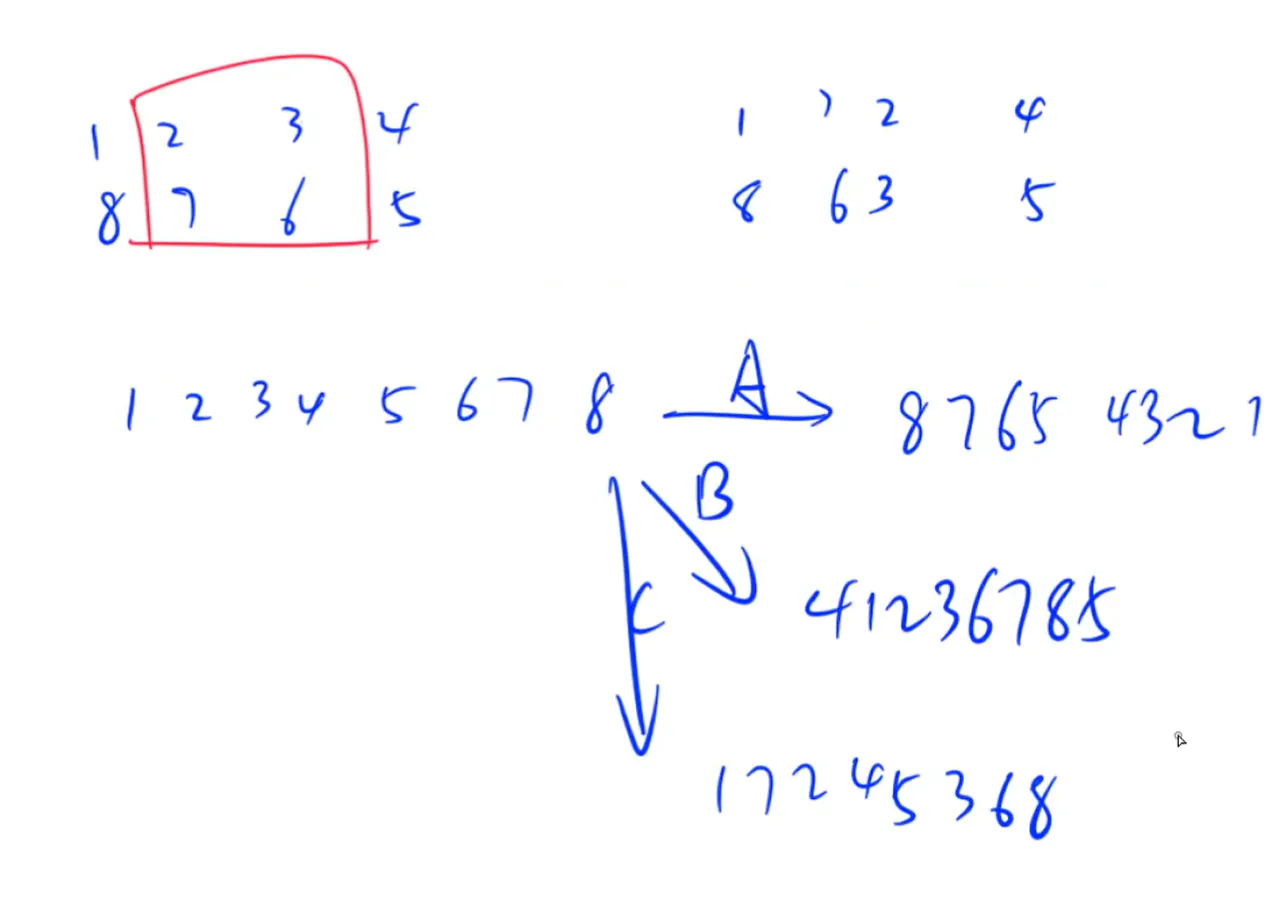 1 2 3 4
8 7 6 5
1 7 2 4
8 6 3 5
1 2 3 4 5 6 7 8 A 8 7 6 5 4 3 2 1
B
4 1 2 3 6 7 8 5
C
1 7 2 4 5 3 6 8